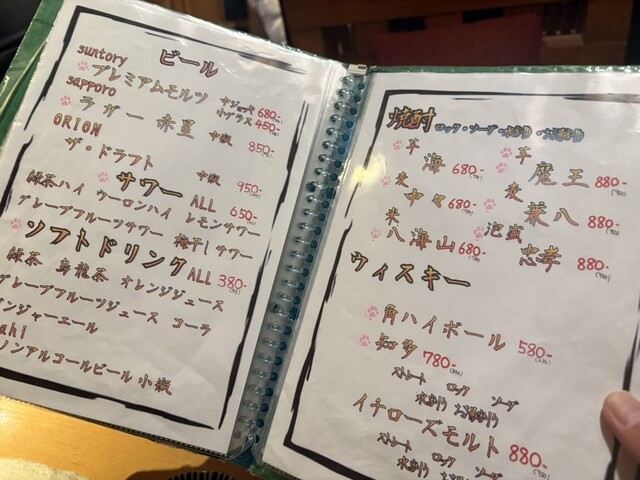 ビール
suntory
プレミアムモルツ 中ジョッキ 680-
小グラス 450-
sapporo
ラガー 赤星 中瓶 850-
ORION
ザ・ドラフト 中瓶 950-
サワー ALL 650-
緑茶ハイ ウーロンハイ レモンサワー
グレープフルーツサワー 梅干しサワー
ソフトドリンク ALL 380-
緑茶 烏龍茶 オレンジジュース
グレープフルーツジュース コーラ
ンジャーエール
ahi
ノンアルコールビール 小瓶
焼酎 ロック・ソーダ・水割り・お湯割り
芋 海 680-
芋 魔王 880-
麦 中々 680-
麦 兼八 880-
米 八海山 680-
泡盛 忠孝 880-
ウィスキー
角ハイボール 580-
知多 780-
ストレート ロック ソーダ
水割り お湯割り
イチローズモルト 880-
ストレート ロック ソーダ
水割り お湯割り